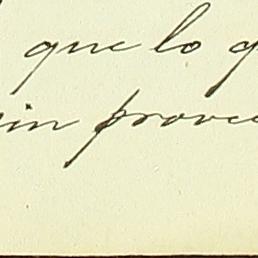 que lo q
in prove